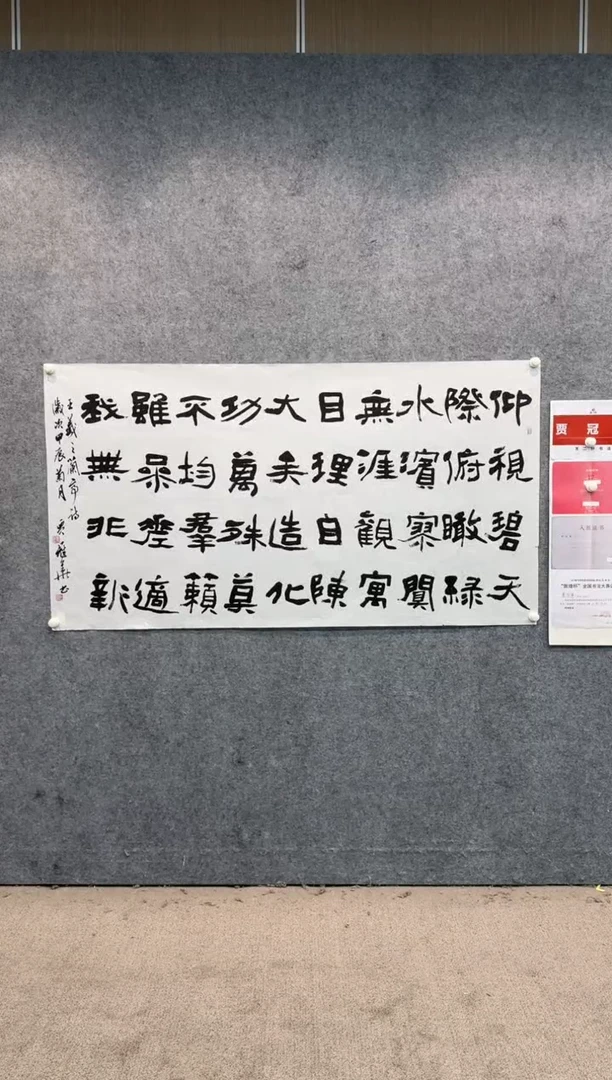 仰視碧天
際俯瞰綠
水濱寥闃
無涯觀寓
目理自陳
大矣造化
功萬殊莫
不均羣籟
雖參差適
我無非新
王羲之蘭亭詩
歲次甲辰菊月
贾 冠
入展证书